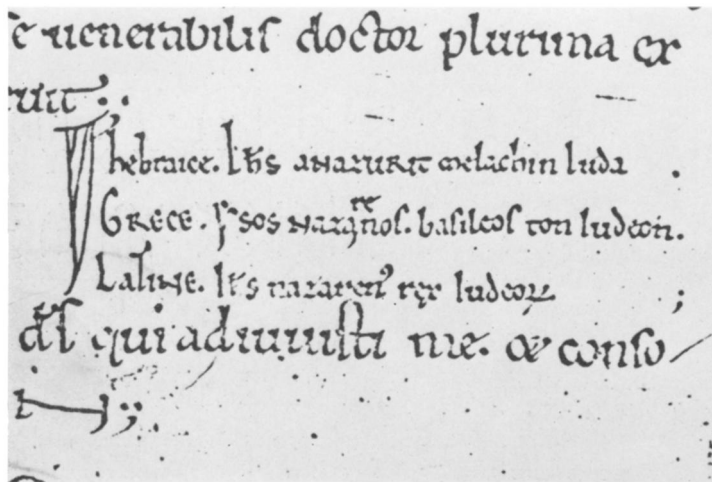 se uenerabilis doctor plurima ex
hebraice. Ihs anazurit melachin Iuda
GRECE. sos nazarenos. basileos ton Iudeon.
LatiNE. Ihs nazaren᾽ rex Iudeoꝝ
ds qui adiuuisti me. & conso